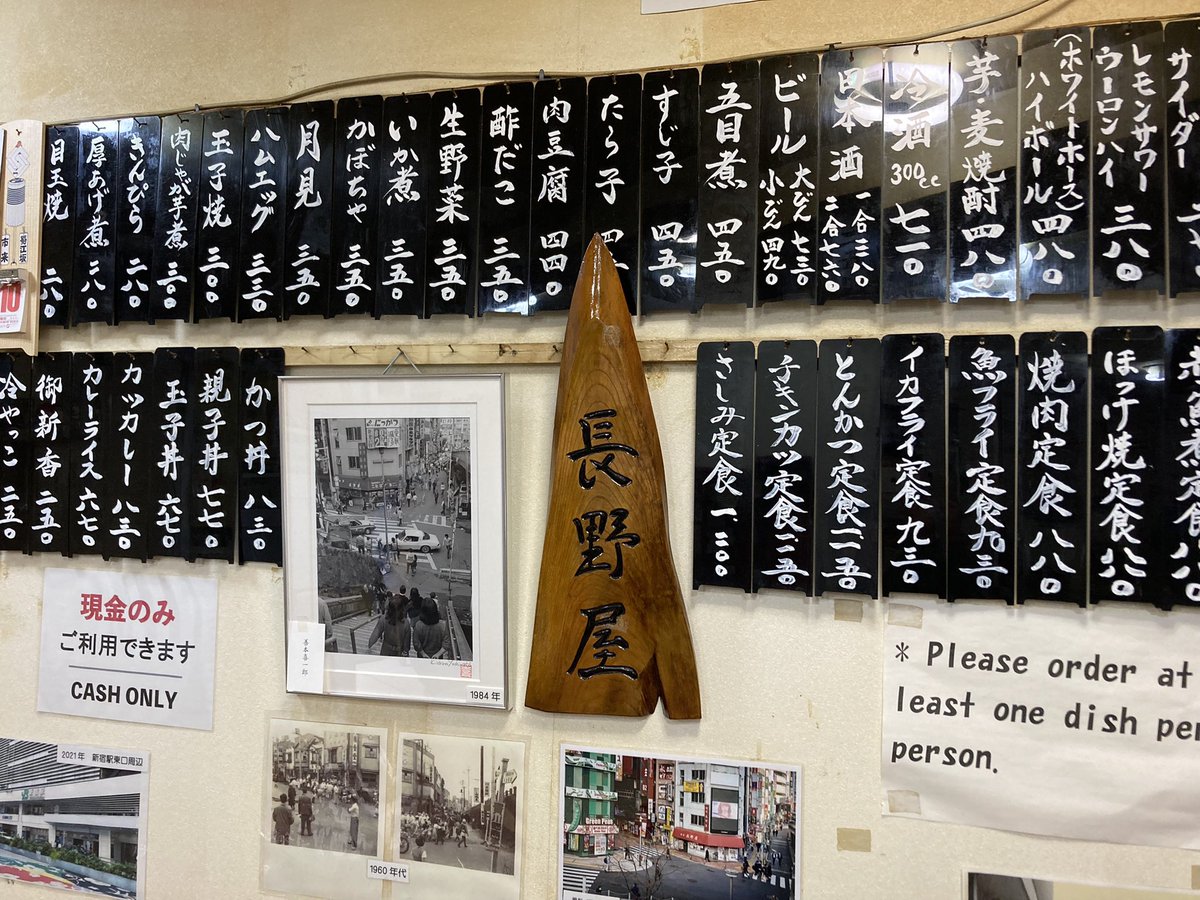 サイダー
レモンサワー
ウーロンハイ 三八〇
(ホワイトホース)
ハイボール 四八〇
芋・麦焼酎 四八〇
冷酒 300cc 七一〇
日本酒 一合三八〇
二合七六〇
ビール 大びん七三〇
小びん四九〇
五目煮 四五〇
すじ子 四五〇
たら子
肉豆腐 四四〇
酢だこ 三五〇
生野菜 三五〇
いか煮 三五〇
かぼちゃ 三五〇
月見 三五〇
ハムエッグ 三三〇
玉子焼 三〇〇
肉じゃが芋煮 三〇〇
きんぴら 二八〇
厚あげ煮 二八〇
目玉焼 二六〇
市来
10
魚煮定食
ほっけ焼定食
焼肉定食 八八〇
魚フライ定食 九三〇
イカフライ定食 九三〇
とんかつ定食
チキンカツ定食
さしみ定食
長野屋
かつ丼 八三〇
親子丼 七七〇
玉子丼 六七〇
カツカレー 八三〇
カレーライス 六七〇
御新香 二五〇
冷やっこ 二五〇
にっかつ
1984年
現金のみ
ご利用できます
CASH ONLY
* Please order at
least one dish per
person.
2021年 新宿駅東口周辺
1960年代
Green Peas